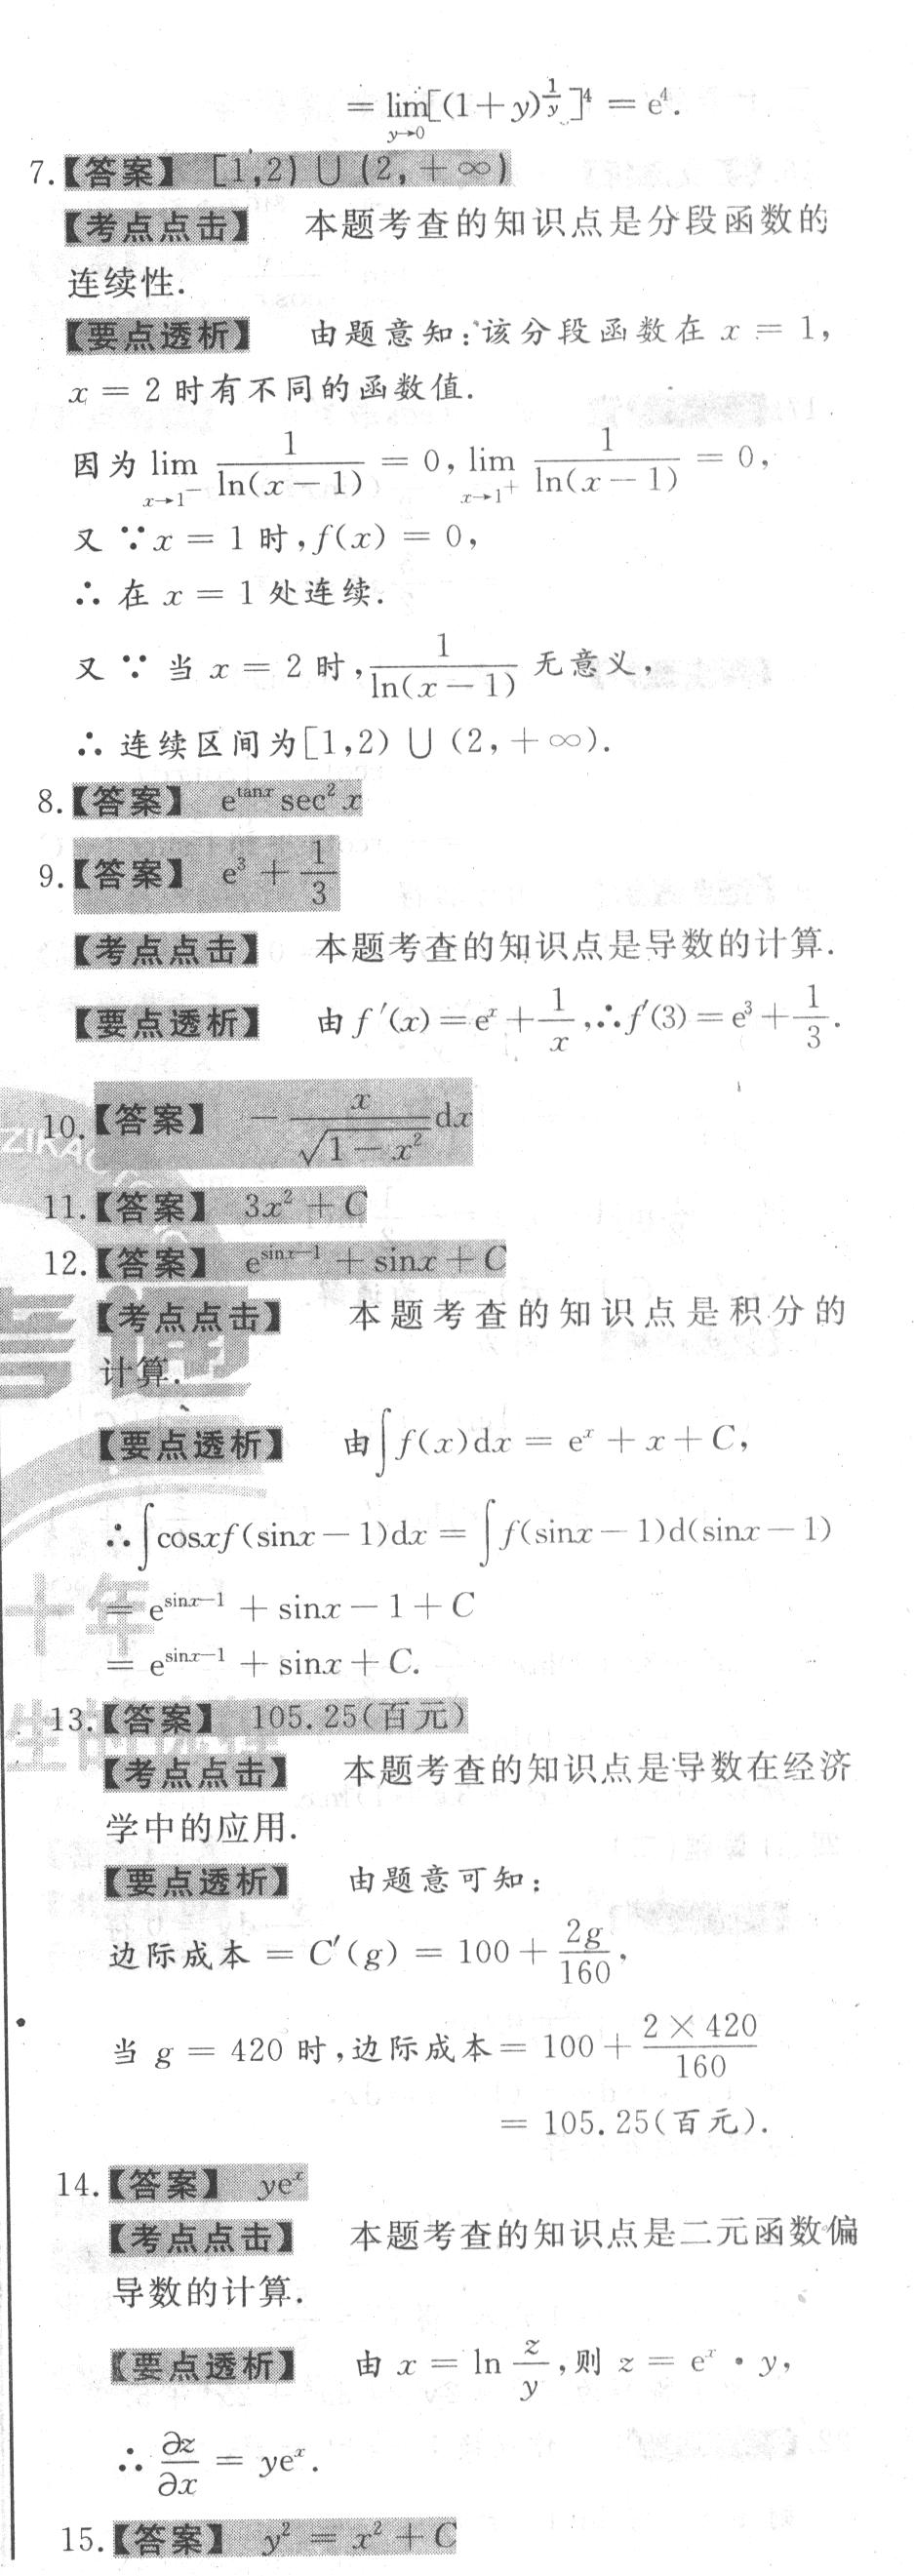 = lim_{y→0}[(1+y)^{1/y}]^4 = e^4.
7.【答案】 [1,2)∪(2,+∞)
【考点点击】 本题考查的知识点是分段函数的
连续性.
【要点透析】 由题意知:该分段函数在 x = 1,
x = 2 时有不同的函数值.
因为 lim_{x→1^-} 1/ln(x-1) = 0, lim_{x→1^+} 1/ln(x-1) = 0,
又 ∵ x = 1 时,f(x) = 0,
∴ 在 x = 1 处连续.
又 ∵ 当 x = 2 时, 1/ln(x-1) 无意义,
∴ 连续区间为[1,2)∪(2,+∞).
8.【答案】 e^{tanx} sec^2 x
9.【答案】 e^3 + 1/3
【考点点击】 本题考查的知识点是导数的计算.
【要点透析】 由 f′(x) = e^x + 1/x, ∴ f′(3) = e^3 + 1/3.
10.【答案】 - x/√(1-x^2) dx
11.【答案】 3x^2 + C
12.【答案】 e^{sinx-1} + sinx + C
【考点点击】 本题考查的知识点是积分的
计算.
【要点透析】 由∫f(x)dx = e^x + x + C,
∴ ∫cosxf(sinx-1)dx = ∫f(sinx-1)d(sinx-1)
= e^{sinx-1} + sinx - 1 + C
= e^{sinx-1} + sinx + C.
13.【答案】 105.25(百元)
【考点点击】 本题考查的知识点是导数在经济
学中的应用.
【要点透析】 由题意可知:
边际成本 = C′(g) = 100 + 2g/160,
当 g = 420 时,边际成本 = 100 + (2×420)/160
= 105.25(百元).
14.【答案】 ye^x
【考点点击】 本题考查的知识点是二元函数偏
导数的计算.
【要点透析】 由 x = ln z/y, 则 z = e^x · y,
∴ ∂z/∂x = ye^x.
15.【答案】 y^2 = x^2 + C
考通
十年